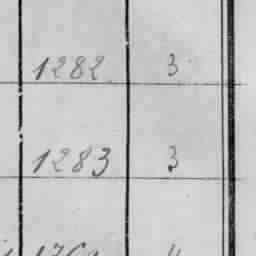 1282 3
1283 3